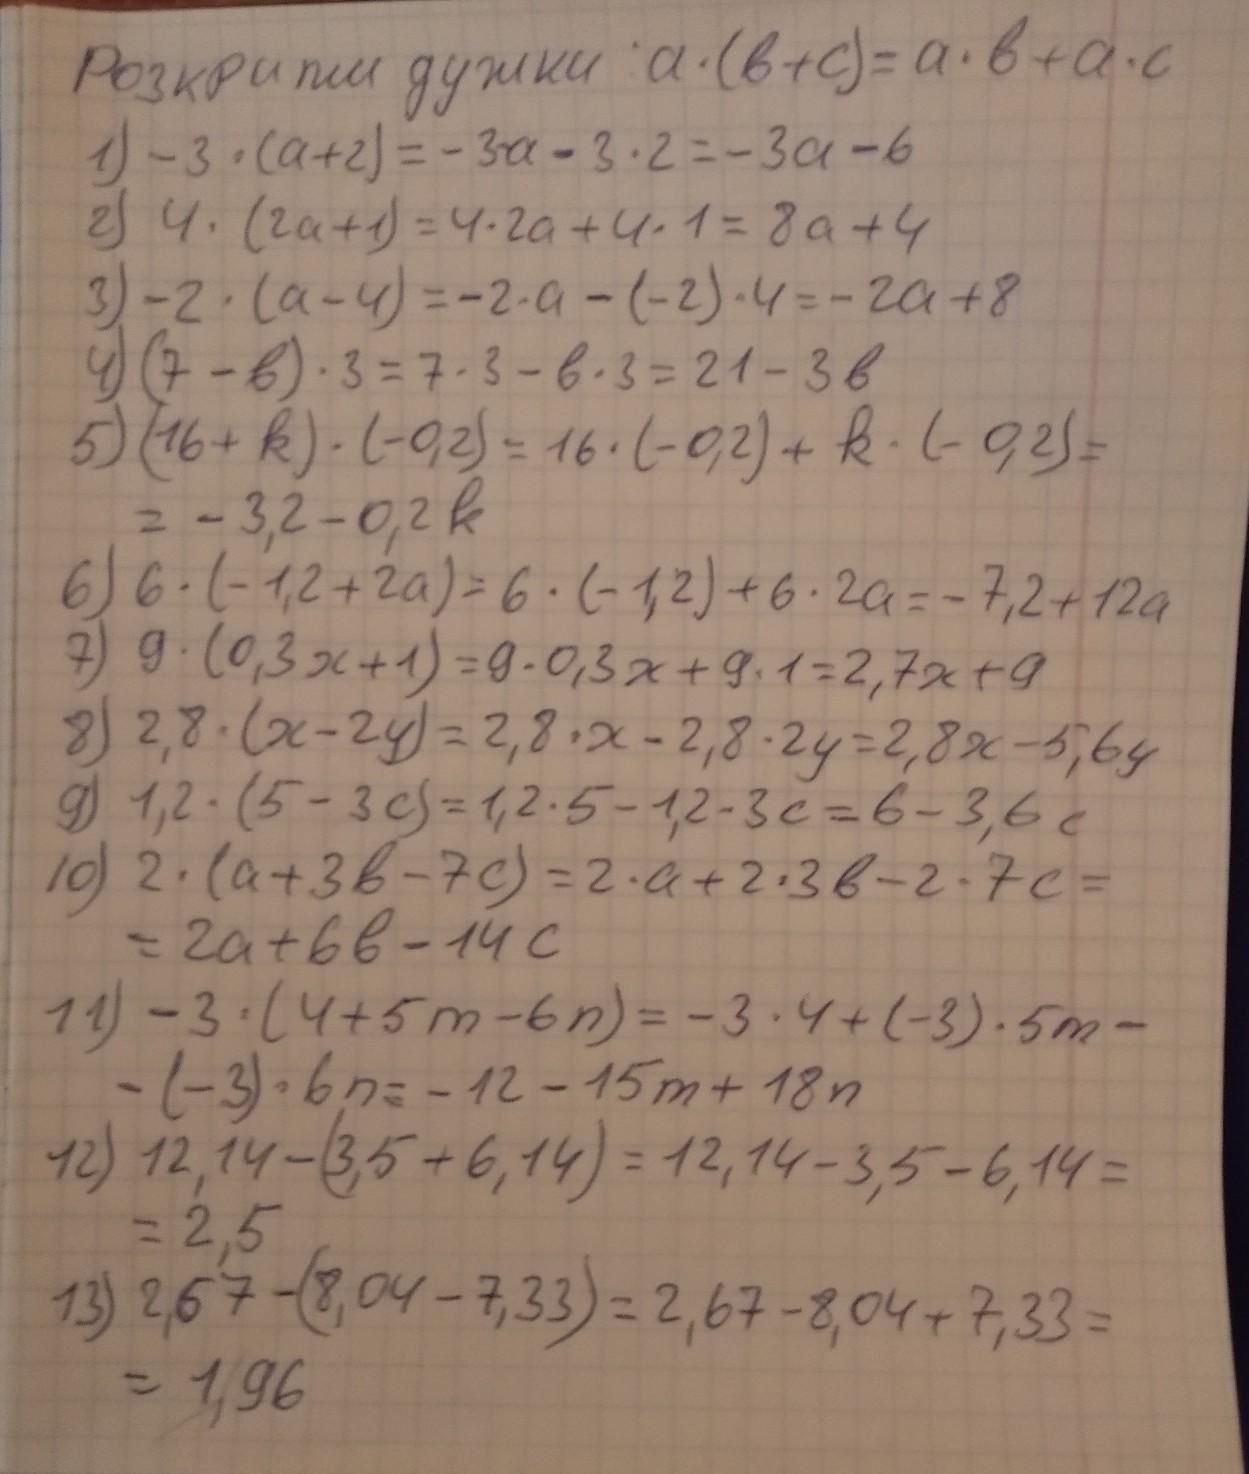 Розкрити дужки : a·(в+c)=a·в+a·c
1) -3·(a+2)=-3a-3·2=-3a-6
2) 4·(2a+1)=4·2a+4·1=8a+4
3) -2·(a-4)=-2·a-(-2)·4=-2a+8
4) (7-в)·3=7·3-в·3=21-3в
5) (16+k)·(-0,2)=16·(-0,2)+k·(-0,2)=
=-3,2-0,2k
6) 6·(-1,2+2a)=6·(-1,2)+6·2a=-7,2+12a
7) 9·(0,3x+1)=9·0,3x+9·1=2,7x+9
8) 2,8·(x-2y)=2,8·x-2,8·2y=2,8x-5,6y
9) 1,2·(5-3c)=1,2·5-1,2·3c=6-3,6c
10) 2·(a+3в-7c)=2·a+2·3в-2·7c=
=2a+6в-14c
11) -3·(4+5m-6n)=-3·4+(-3)·5m-
-(-3)·6n=-12-15m+18n
12) 12,14-(3,5+6,14)=12,14-3,5-6,14=
=2,5
13) 2,67-(8,04-7,33)=2,67-8,04+7,33=
=1,96